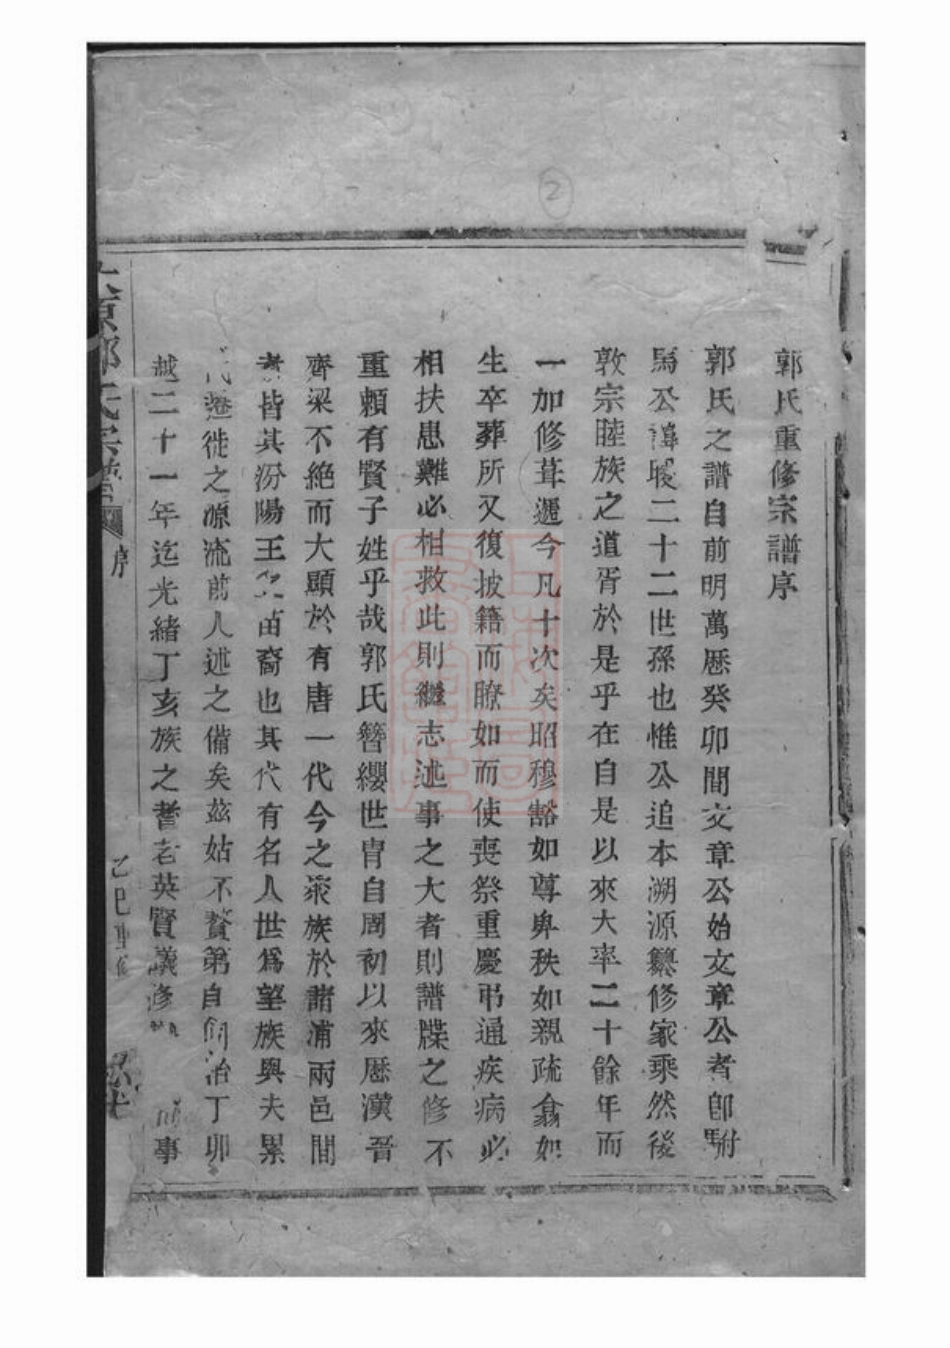 ②
郭氏重修宗譜序
郭氏之譜自前明萬厯癸卯間文章公始文章公者卽駙
馬公諱曖二十二世孫也惟公追本溯源纂修家乘然後
敦宗睦族之道胥於是乎在自是以來大率二十餘年而
一加修葺遞今凡十次矣昭穆豁如尊卑秩如親疏翕如
生卒葬所又復披籍而瞭如而使喪祭重慶弔通疾病必
相扶患難必相救此則繼志述事之大者則譜牒之修不
重賴有賢子姓乎哉郭氏簪纓世胄自周初以來厯漢晉
齊梁不絶而大顯於有唐一代今之衆族於諸浦兩邑間
者皆其汾陽王之苗裔也其代有名人世爲望族與夫累
代遷徙之源流前人述之備矣茲姑不贅第自同治丁卯
越二十一年迄光緒丁亥族之耆老英賢議修 事
太原郭氏宗譜
序
乙巳重修